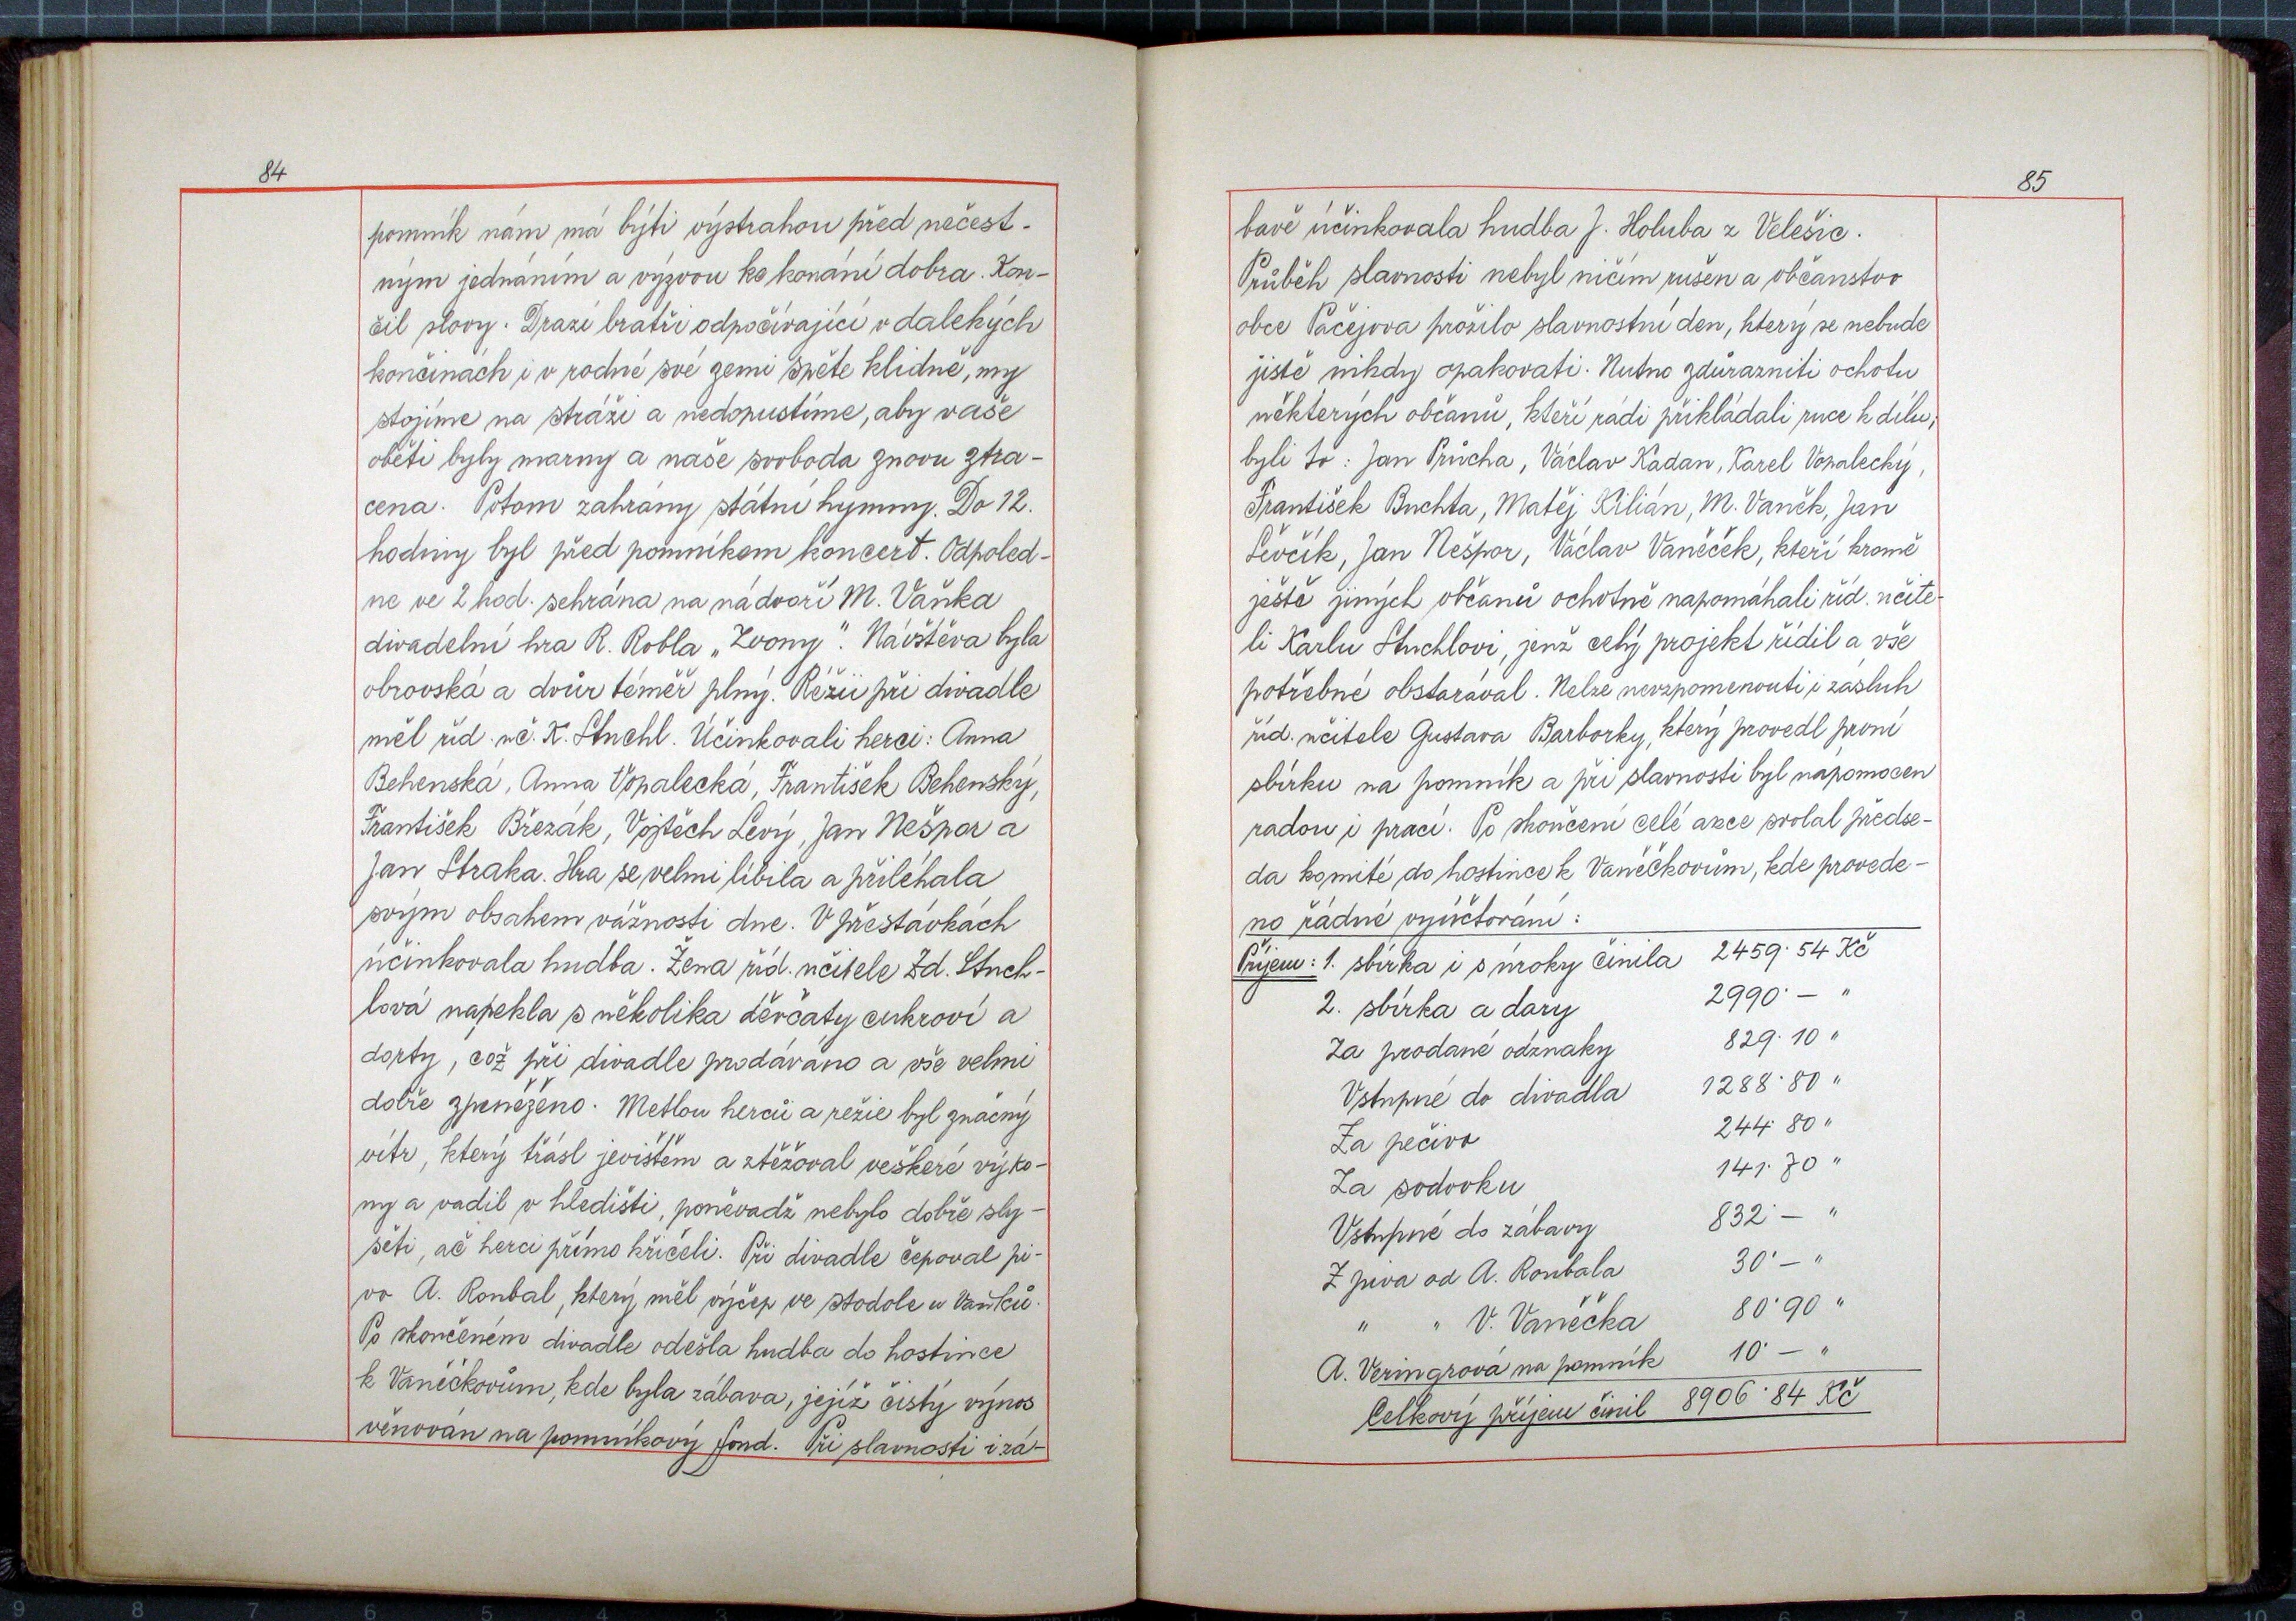 84
pomník nám má býti výstrahou před nečest-
ným jednáním a výzvou ke konání dobra. Kon-
čil slovy. Drazí bratři odpočívající v dalekých
končinách i v rodné své zemi spěte klidně, my
stojíme na stráži a nedopustíme, aby vaše
oběti byly marny a naše svoboda znovu ztra-
cena. Potom zahrány státní hymny. Do 12.
hodiny byl před pomníkem koncert. Odpoled-
ne ve 2 hod. sehrána na nádvoří M. Vaňka
divadelní hra R. Robla „Zvony". Návštěva byla
obrovská a dvůr téměř plný. Režii při divadle
měl říd. uč. K. Stuchl. Účinkovali herci: Anna
Behenská, Anna Vopalecká, František Behenský,
František Březák, Vojtěch Levý, Jan Nešpor a
Jan Straka. Hra se velmi líbila a přiléhala
svým obsahem vážnosti dne. V přestávkách
účinkovala hudba. Žena říd. učitele Zd. Stuch-
lová napekla s několika děvčaty cukroví a
dorty, což při divadle prodáváno a vše velmi
dobře zpeněženo. Metlou herců a režie byl značný
vítr, který třásl jevištěm a ztěžoval veškeré výko-
ny a vadil v hledišti, poněvadž nebylo dobře sly-
šeti, ač herci přímo křičeli. Při divadle čepoval pi-
vo A. Roubal, který měl výčep ve stodole u Vaňků.
Po skončeném divadle odešla hudba do hostince
k Vaněčkovům, kde byla zábava, jejíž čistý výnos
věnován na pomníkový fond. Při slavnosti i zá-
85
bavě účinkovala hudba J. Holuba z Velešic.
Průběh slavnosti nebyl ničím rušen a občanstvo
obce Pačejova prožilo slavnostní den, který se nebude
jistě nikdy opakovati. Nutno zdůrazniti ochotu
některých občanů, kteří rádi přikládali ruce k dílu;
byli to: Jan Průcha, Václav Kadan, Karel Vopalecký,
František Buchta, Matěj Kilián, M. Vaněk, Jan
Ševčík, Jan Nešpor, Václav Vaněček, kteří kromě
ještě jiných občanů ochotně napomáhali říd. učite-
li Karlu Stuchlovi, jenž celý projekt řídil a vše
potřebné obstarával. Nelze nevzpomenouti i zásluh
říd. učitele Gustava Barborky, který provedl první
sbírku na pomník a při slavnosti byl nápomocen
radou i prací. Po skončení celé akce svolal předse-
da komité do hostince k Vaněčkovům, kde provede-
no řádné vyúčtování:
Příjem: 1. sbírka i s úroky činila 2459·54 Kč
2. sbírka a dary 2990·— "
Za prodané odznaky 829·10 "
Vstupné do divadla 1288·80 "
Za pečivo 244·80 "
Za sodovku 141·70 "
Vstupné do zábavy 832·— "
Z piva od A. Roubala 30·— "
" " V. Vaněčka 80·90 "
A. Veringrová na pomník 10·— "
Celkový příjem činil 8906·84 Kč